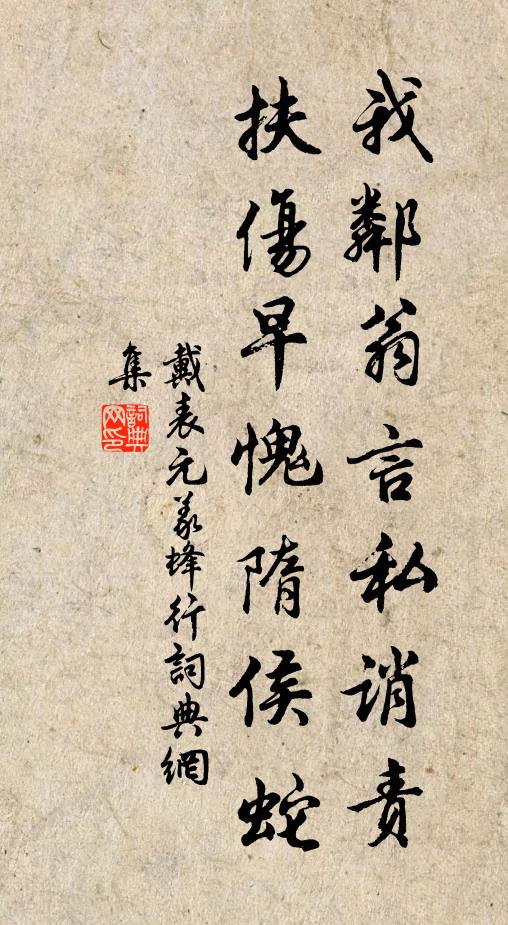 我鄰翁言私誚責
扶傷早愧隋侯蛇
戴表元義蜂行詞典網
集
詞典
网印